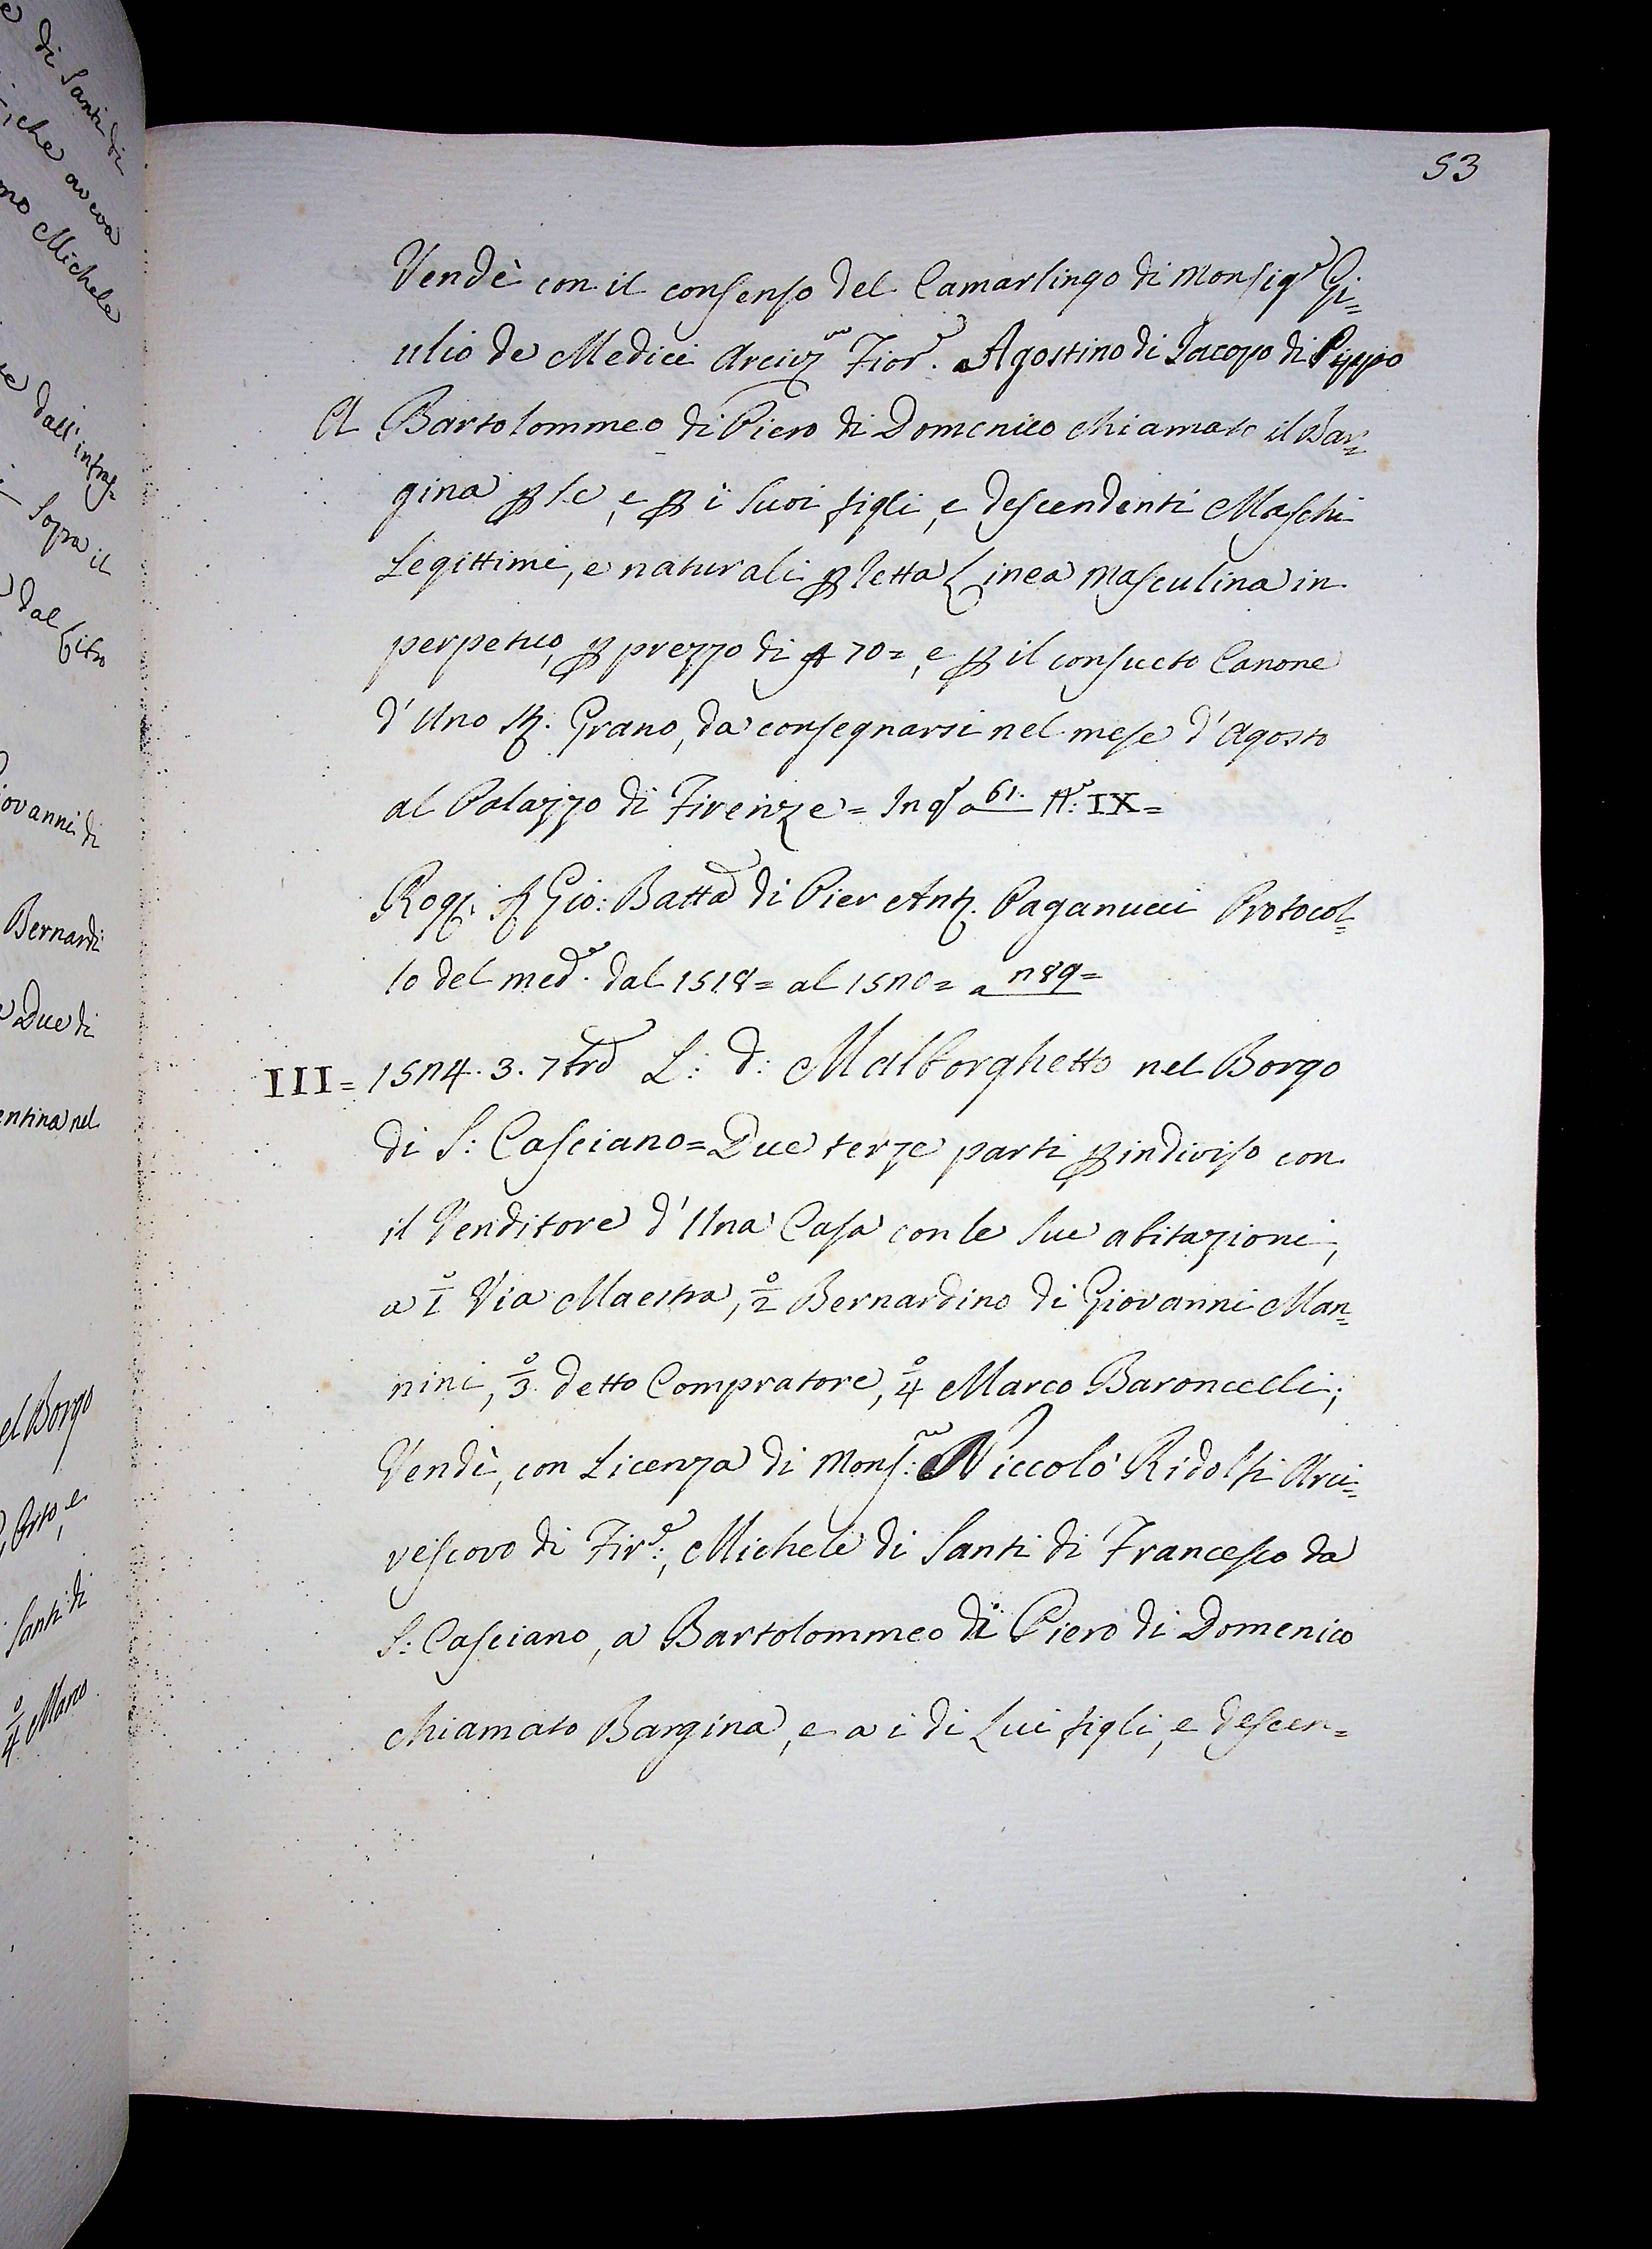 53
Vendè con il consenso del Camarlingo di Monsig.e Gi=
ulio de Medici Arciv.o Fior.e Agostino di Iacopo di Pippo
A Bartolommeo di Piero di Domenico chiamato il Bar=
gina p se, e p i suoi figli, e descendenti Maschi
Legittimi, e naturali p retta Linea Masculina in
perpetuo, p prezzo di 70=, e p il consueto Canone
d'Uno st. Grano, da consegnarsi nel mese d'Agosto
al Palazzo di Firenze= In q.o a 61. IX=
Rog. Gio: Batta di Pier Ant. Paganucci Protocol=
lo del med.o dal 1518= al 1520= a 289=
III= 1524. 3. 7bre L: d: Malborghetto nel Borgo
di S: Casciano= Due terze parti p indiviso con
il Venditore d'Una Casa con le sue abitazioni,
a 1° Via Maestra, 2° Bernardino di Giovanni Man=
nini, 3° detto Compratore, 4° Marco Baroncelli;
Vendè, con Licenza di Mons:re Niccolò Ridolfi Arci=
vescovo di Fir.e:, Michele di Santi di Francesco da
S: Casciano, a Bartolommeo di Piero di Domenico
chiamato Bargina, e a i di Lui figli, e descen=
di Santi di
che aveva
Michele
dall'infras=
Sopra il
dal Libro
Giovanni di
Bernardi
Due di
nel Borgo
Orto, e
Santi di
4° Marco